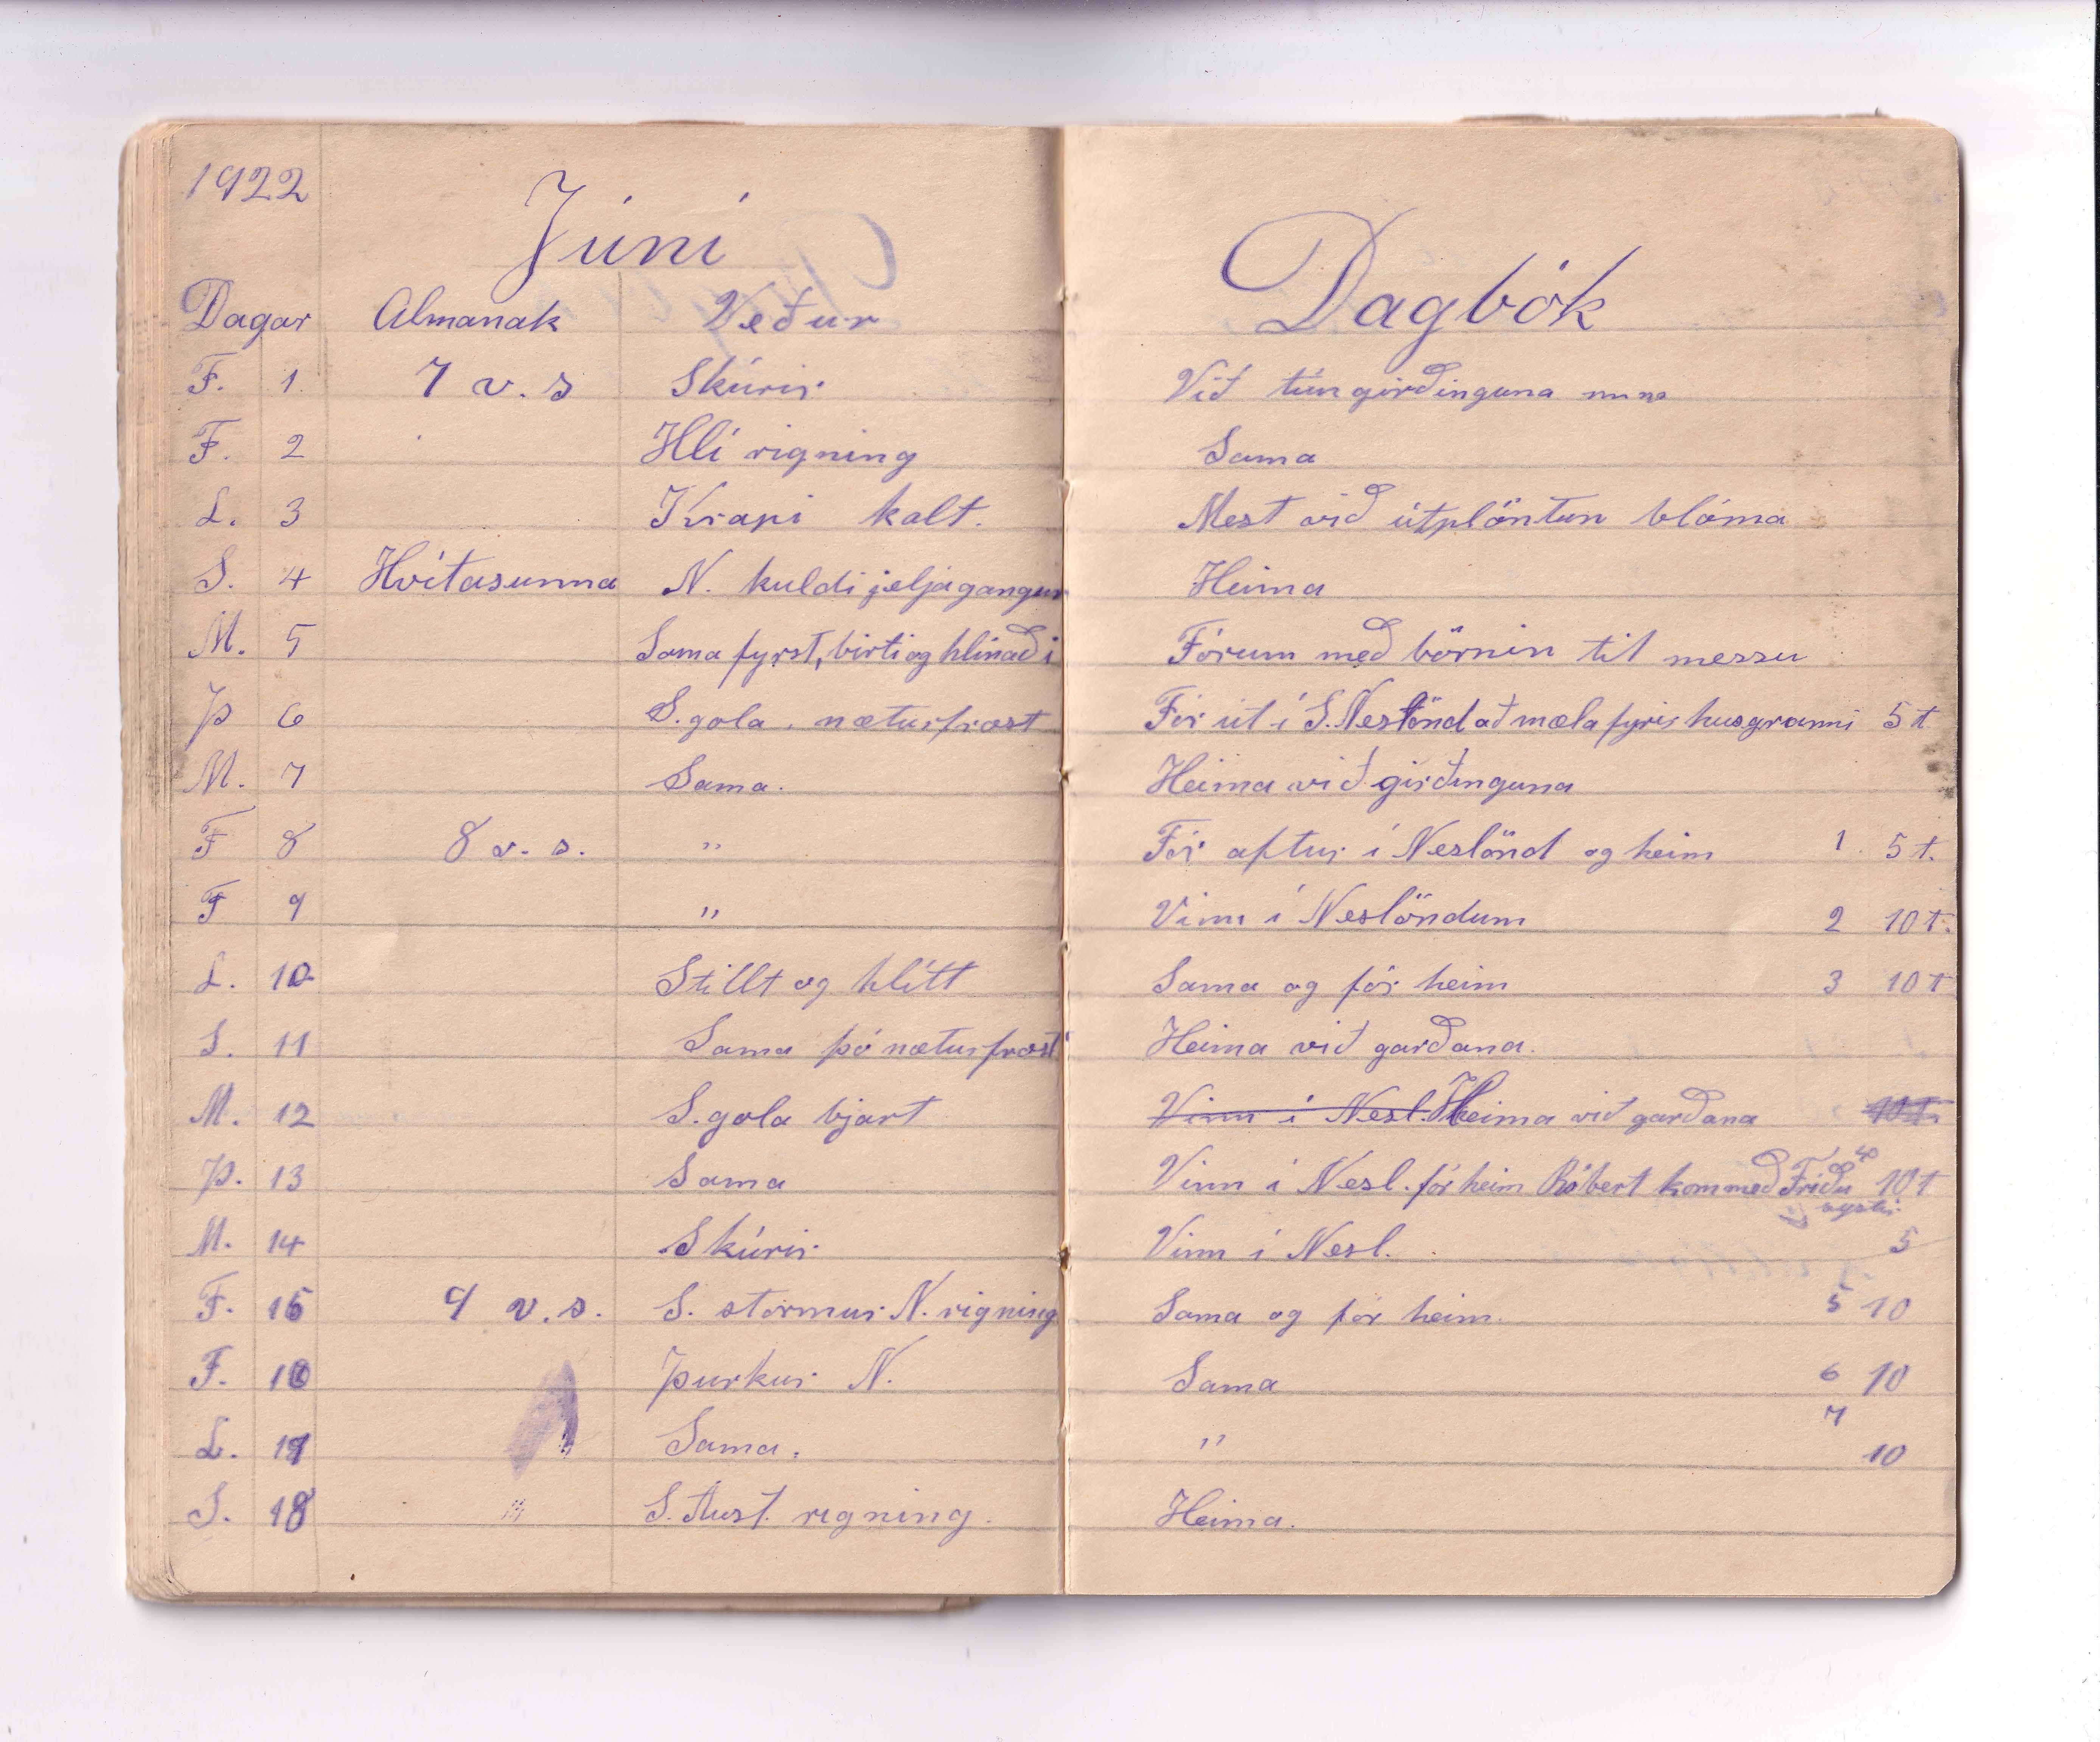 1922
Júní
Dagbók
Dagar Almanak Veður
F. 1 7 v. s Skúrir Við túngirðinguna
F. 2 Hlí rigning Sama
L. 3 Krapi kalt. Mest við útplöntun blóma
S. 4 Hvítasunna N. kuldi jeljagangur Heima
M. 5 Sama fyrst, birti og hlínaði Fórum með börnin til messu
Þ 6 S. gola. næturfrost Fór út í S. Neslönd að mæla fyrir husgrunni 5 t
M. 7 Sama. Heima við girðinguna
F 8 8 v. s. " Fór aftur í Neslönd og heim 1 5 t.
F 9 " Vinn í Neslöndum 2 10 t.
L. 10 Stillt og hlítt Sama og fór heim 3 10 t
S. 11 Sama þó næturfrost Heima við garðana.
M. 12 S. gola bjart Vinn í Nesl. Heima við garðana 10 t.
Þ. 13 Sama Vinn í Nesl. fór heim Róbert kom með Fríðu 4 10 t
systir.
M. 14 Skúrir Vinn í Nesl. 5
F. 15 9 v. s. S. stormur N. rigning Sama og fór heim. 5 10
F. 16 Þurkur N. Sama 6 10
L. 17 Sama. " 7 10
S. 18 S. Aust. rigning. Heima.